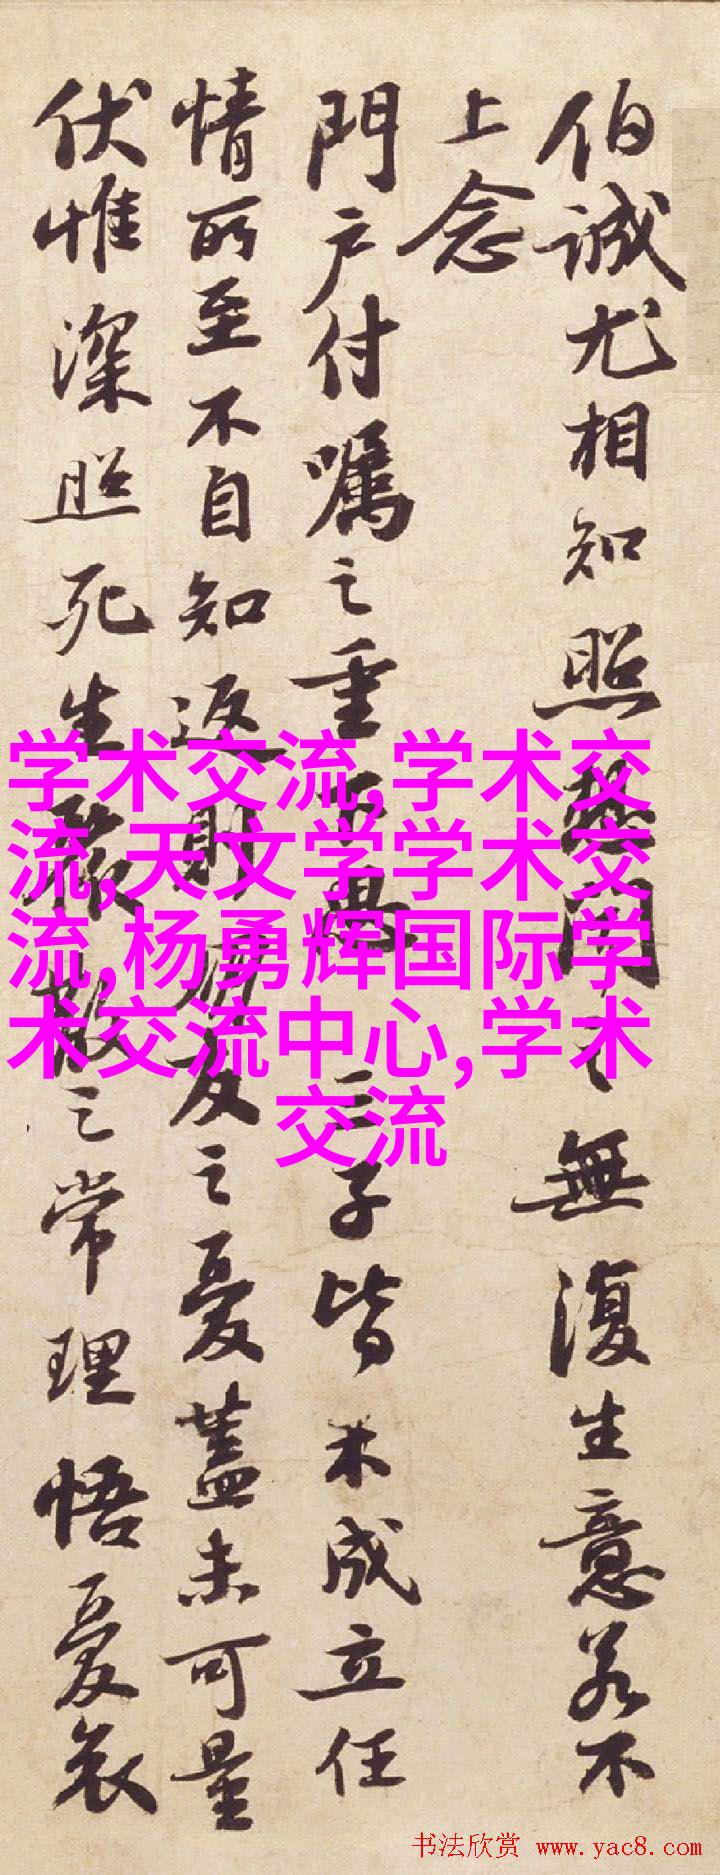 伯誠尤相知照無復生意若不
上念
門户付囑之重三子皆未成立任
情所至不自知返則朋友之憂蓋未可量
伏惟深照死生聚散之常理悟憂哀
学术交流,学术交
流,天文学学术交
流,杨勇辉国际学
术交流中心,学术
交流
书法欣赏 www.yac8.com